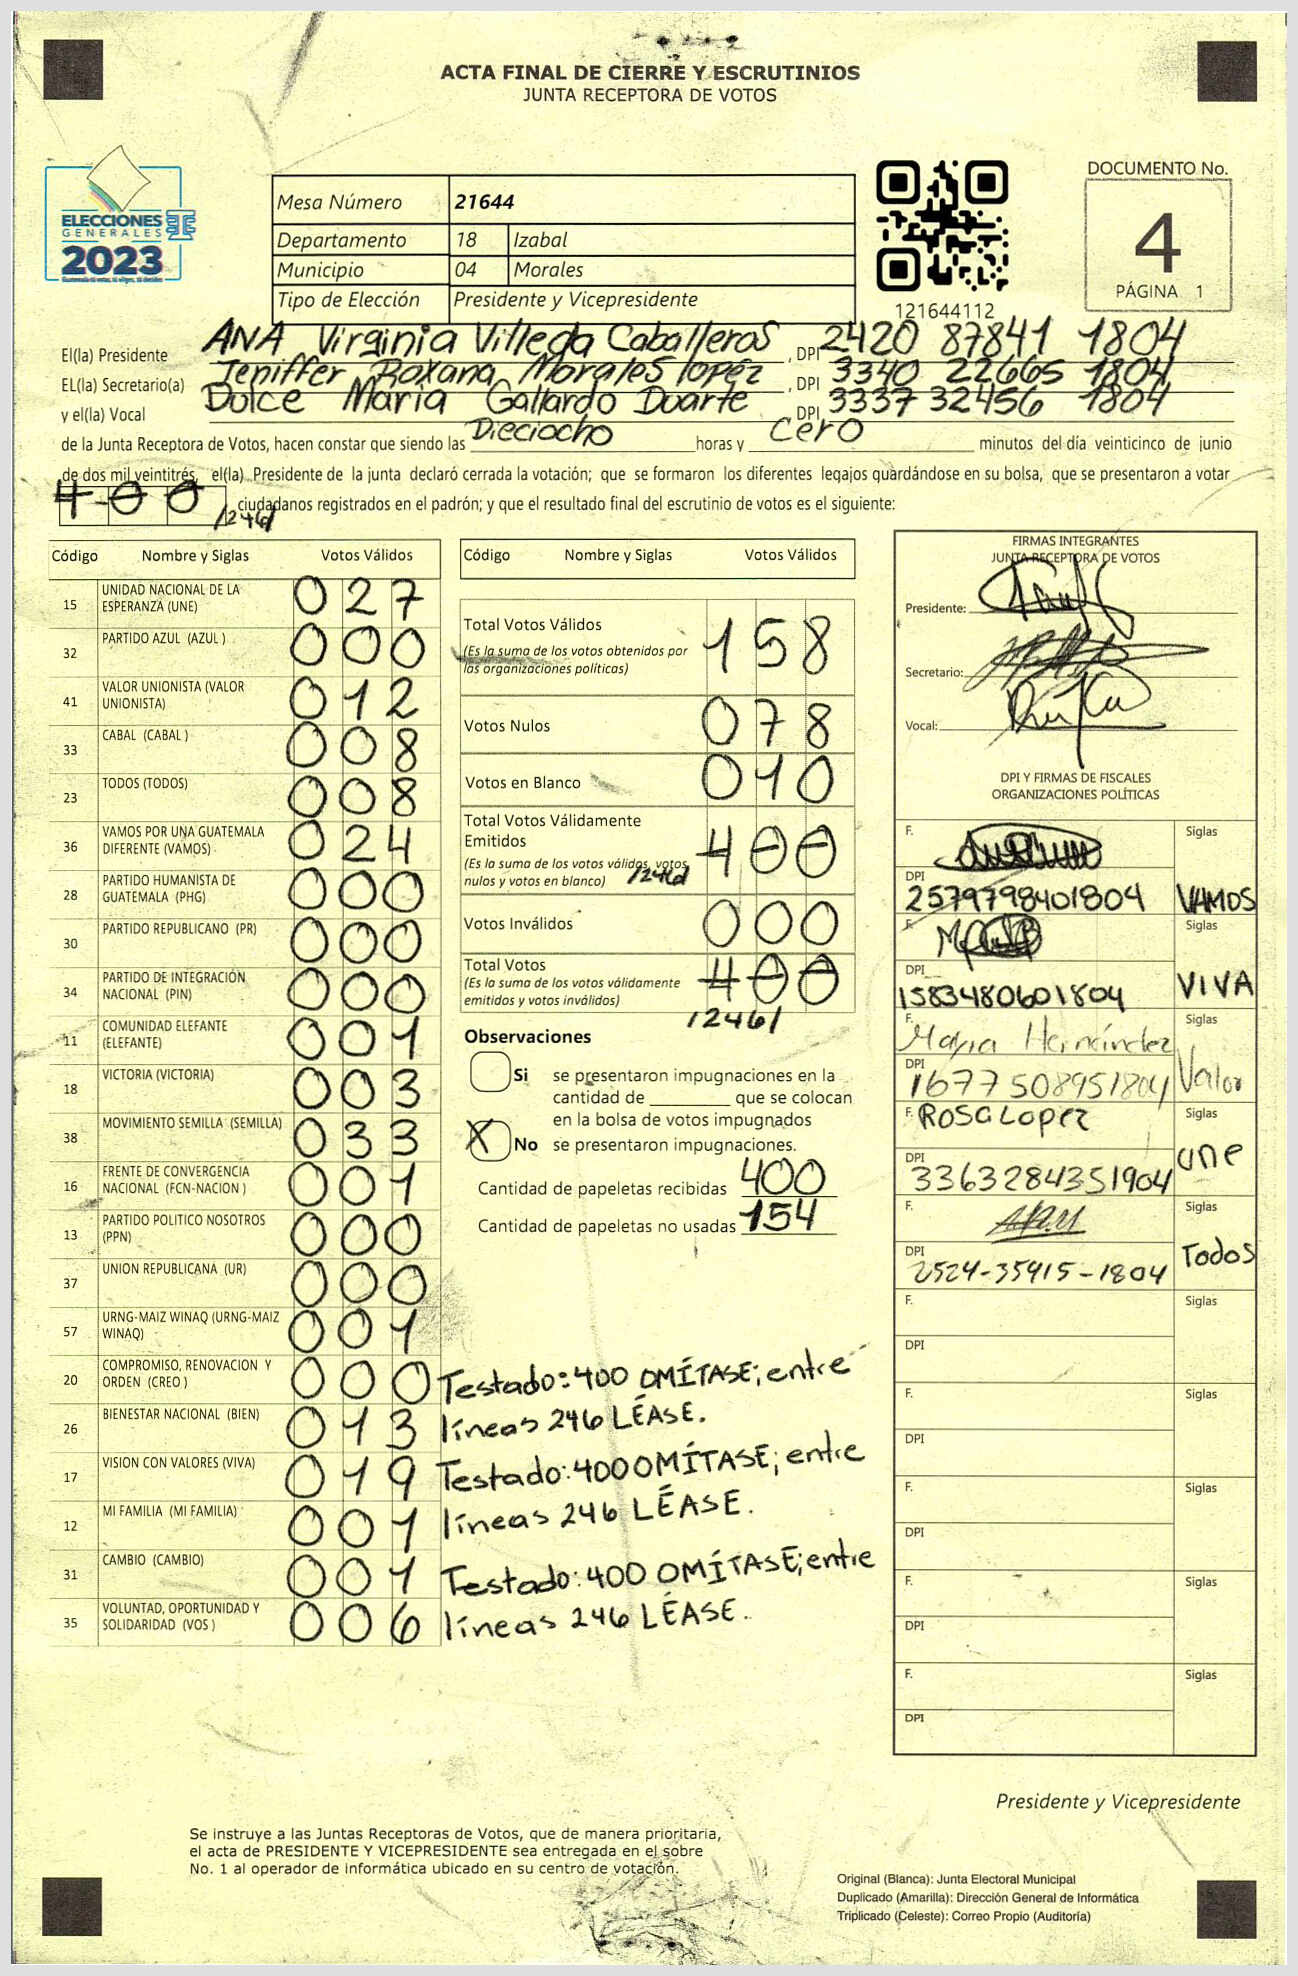 ACTA FINAL DE CIERRE Y ESCRUTINIOS
JUNTA RECEPTORA DE VOTOS
ELECCIONES
GENERALES
2023
Mesa Número 21644
Departamento 18 Izabal
Municipio 04 Morales
Tipo de Elección Presidente y Vicepresidente
121644112
DOCUMENTO No.
4
PÁGINA 1
El(la) Presidente ANA Virginia Villeda Caballeros , DPI 2420 87841 1804
EL(la) Secretario(a) Jeniffer Roxana Morales lopéz , DPI 3340 22665 1804
y el(la) Vocal Dulce Maria Gallardo Duarte , DPI 3337 32456 1804
de la Junta Receptora de Votos, hacen constar que siendo las Dieciocho horas y cero minutos del día veinticinco de junio
de dos mil veintitrés, el(la) Presidente de la junta declaró cerrada la votación; que se formaron los diferentes legajos quàrdándose en su bolsa, que se presentaron a votar
400 /246/ ciudadanos registrados en el padrón; y que el resultado final del escrutinio de votos es el siguiente:
Código Nombre y Siglas Votos Válidos
15 UNIDAD NACIONAL DE LA ESPERANZA (UNE) 027
32 PARTIDO AZUL (AZUL ) 000
41 VALOR UNIONISTA (VALOR UNIONISTA) 012
33 CABAL (CABAL ) 008
23 TODOS (TODOS) 008
36 VAMOS POR UNA GUATEMALA DIFERENTE (VAMOS) 024
28 PARTIDO HUMANISTA DE GUATEMALA (PHG) 000
30 PARTIDO REPUBLICANO (PR) 000
34 PARTIDO DE INTEGRACIÓN NACIONAL (PIN) 000
11 COMUNIDAD ELEFANTE (ELEFANTE) 001
18 VICTORIA (VICTORIA) 003
38 MOVIMIENTO SEMILLA (SEMILLA) 033
16 FRENTE DE CONVERGENCIA NACIONAL (FCN-NACION ) 001
13 PARTIDO POLITICO NOSOTROS (PPN) 000
37 UNION REPUBLICANA (UR) 000
57 URNG-MAIZ WINAQ (URNG-MAIZ WINAQ) 001
20 COMPROMISO, RENOVACION Y ORDEN (CREO ) 000
26 BIENESTAR NACIONAL (BIEN) 013
17 VISION CON VALORES (VIVA) 019
12 MI FAMILIA (MI FAMILIA) 001
31 CAMBIO (CAMBIO) 001
35 VOLUNTAD, OPORTUNIDAD Y SOLIDARIDAD (VOS ) 006
Código Nombre y Siglas Votos Válidos
Total Votos Válidos 158
(Es la suma de los votos obtenidos por
las organizaciones políticas)
Votos Nulos 078
Votos en Blanco 010
Total Votos Válidamente
Emitidos 400
(Es la suma de los votos válidos, votos
nulos y votos en blanco) /246/
Votos Inválidos 000
Total Votos 400
(Es la suma de los votos válidamente
emitidos y votos inválidos)
/246/
Observaciones
Si se presentaron impugnaciones en la
cantidad de ________ que se colocan
en la bolsa de votos impugnados
X No se presentaron impugnaciones.
Cantidad de papeletas recibidas 400
Cantidad de papeletas no usadas 154
Testado: 400 OMÍTASE; entre
líneas 246 LÉASE.
Testado: 400 OMÍTASE; entre
líneas 246 LÉASE.
Testado: 400 OMÍTASE; entre
líneas 246 LÉASE.
FIRMAS INTEGRANTES
JUNTA RECEPTORA DE VOTOS
Presidente:
Secretario:
Vocal:
DPI Y FIRMAS DE FISCALES
ORGANIZACIONES POLÍTICAS
F. Siglas
DPI 2579798401804 VAMOS
F. Siglas
DPI 1583480601804 VIVA
F. Mayra Hernández Siglas
DPI 1677508951804 Valor
F. Rosa Lopez Siglas
DPI 3363284351904 une
F. Siglas
DPI 2524-35915-1804 Todos
F. Siglas
DPI
F. Siglas
DPI
F. Siglas
DPI
F. Siglas
DPI
F. Siglas
DPI
Presidente y Vicepresidente
Se instruye a las Juntas Receptoras de Votos, que de manera prioritaria,
el acta de PRESIDENTE Y VICEPRESIDENTE sea entregada en el sobre
No. 1 al operador de informática ubicado en su centro de votación.
Original (Blanca): Junta Electoral Municipal
Duplicado (Amarilla): Dirección General de Informática
Triplicado (Celeste): Correo Propio (Auditoría)